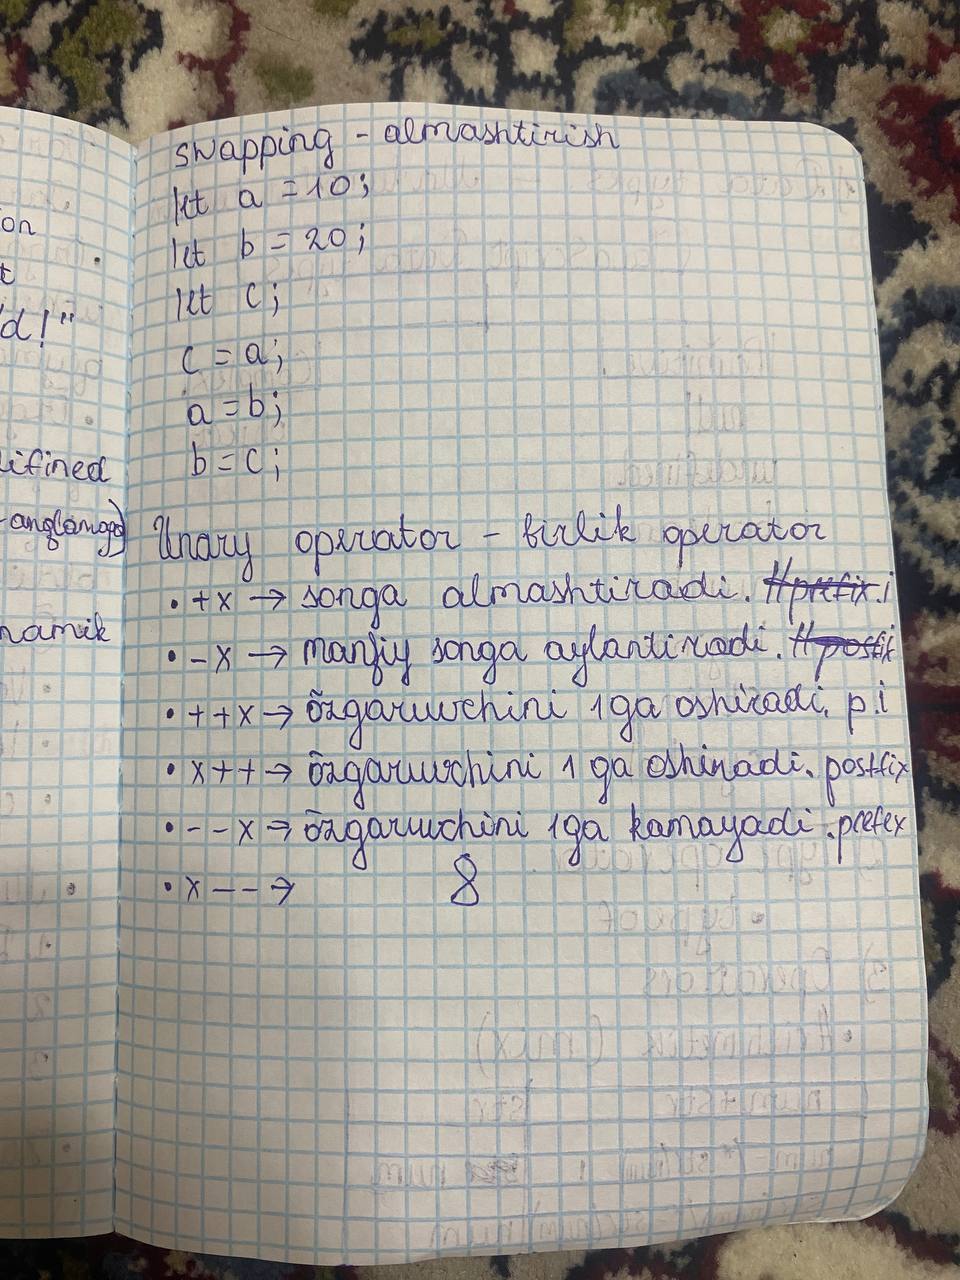 on
t
d!"
ifined
-anglamoga)
namik
swapping - almashtirish
let a = 10;
let b = 20;
let c;
c = a;
a = b;
b = c;
Unary operator - birlik operator
• +x → songa almashtiradi. //prefix.i
• -x → manfiy songa aylantiradi. //postfix
• ++x → õzgaruvchini 1 ga oshiradi. p.i
• x++ → õzgaruvchini 1 ga oshiradi. postfix
• --x → õzgaruvchini 1ga kamayadi. prefex
• x-- → 8